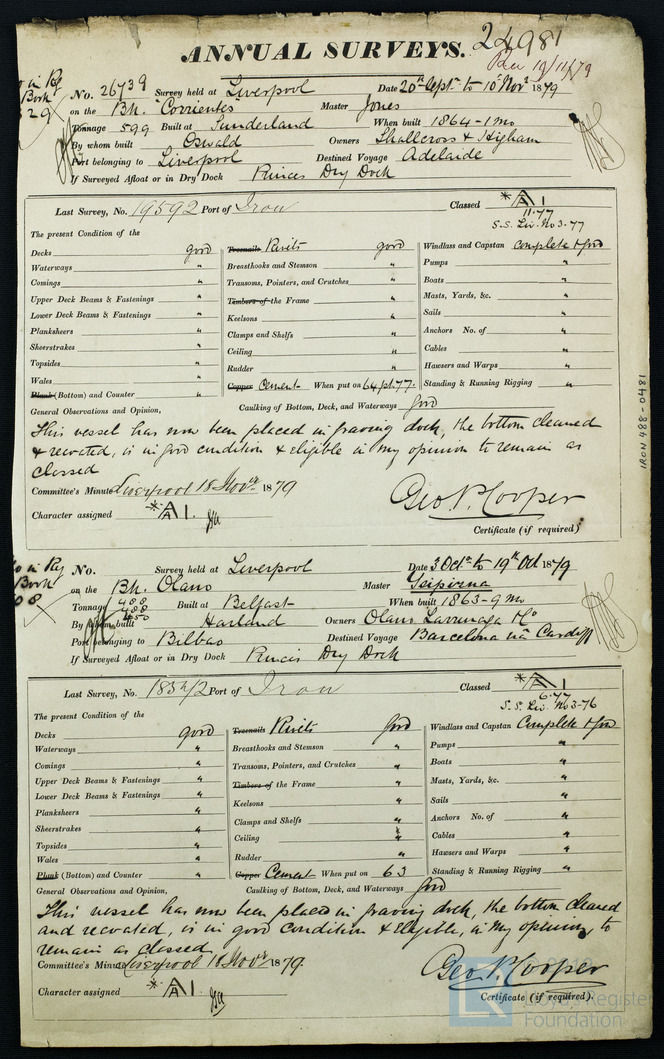 ANNUAL SURVEYS. 24981
Rec 19/11/79
in Reg
Book
829
No. 26739 Survey held at Liverpool Date 20th Sept. to 10th Novr 1879
on the Bk. "Corrientes" Master Jones
Tonnage 599 Built at Sunderland When built 1864-1 mo
By whom built Oswald Owners Shallcross & Higham
Port belonging to Liverpool Destined Voyage Adelaide
If Surveyed Afloat or in Dry Dock Princes Dry Dock
Last Survey, No. 19592 Port of Iron Classed * A 1
11.77
S.S. Liv. No 3-77
The present Condition of the
Decks good Treenails Rivets good Windlass and Capstan complete & good
Waterways " Breasthooks and Stemson " Pumps "
Comings " Transoms, Pointers, and Crutches " Boats "
Upper Deck Beams & Fastenings " Timbers of the Frame " Masts, Yards, &c. "
Lower Deck Beams & Fastenings " Keelsons " Sails "
Planksheers " Clamps and Shelfs " Anchors No. of "
Sheerstrakes " Ceiling " Cables "
Topsides " Rudder " Hawsers and Warps "
Wales " Copper Cement When put on 64 pt. 77. Standing & Running Rigging "
Plank (Bottom) and Counter "
General Observations and Opinion, Caulking of Bottom, Deck, and Waterways good
This vessel has now been placed in graving dock, the bottom cleaned
& recoated, is in good condition & eligible in my opinion to remain as
classed
Committee's Minute Liverpool 18 Novr. 1879 Geo. P. Cooper
Character assigned * A 1. Certificate (if required)
IRON 488-0481
in Reg
Book
08
No. Survey held at Liverpool Date 3 Octr. to 19th Oct 1879
on the Bk. Olano Master
Tonnage 488 Built at Belfast When built 1863-9 mo
488
450
By whom built Harland Owners Olano Larrinaga & Co
Port belonging to Bilbao Destined Voyage Barcelona via Cardiff
If Surveyed Afloat or in Dry Dock Princes Dry Dock
Last Survey, No. Port of Iron Classed * A 1
6.77
S.S. Liv. No 3-76
The present Condition of the
Decks good Treenails Rivets good Windlass and Capstan Complete & good
Waterways " Breasthooks and Stemson " Pumps "
Comings " Transoms, Pointers, and Crutches " Boats "
Upper Deck Beams & Fastenings " Timbers of the Frame " Masts, Yards, &c. "
Lower Deck Beams & Fastenings " Keelsons " Sails "
Planksheers " Clamps and Shelfs " Anchors No. of "
Sheerstrakes " Ceiling " Cables "
Topsides " Rudder " Hawsers and Warps "
Wales " Copper Cement When put on 63 Standing & Running Rigging "
Plank (Bottom) and Counter "
General Observations and Opinion, Caulking of Bottom, Deck, and Waterways good
This vessel has now been placed in graving dock, the bottom cleaned
and recoated, is in good condition & eligible, in my opinion, to
remain as classed
Committee's Minute Liverpool 18 Novr. 1879. Geo. P. Cooper
Character assigned * A 1. Certificate (if required).
Lloyd's Register
Foundation